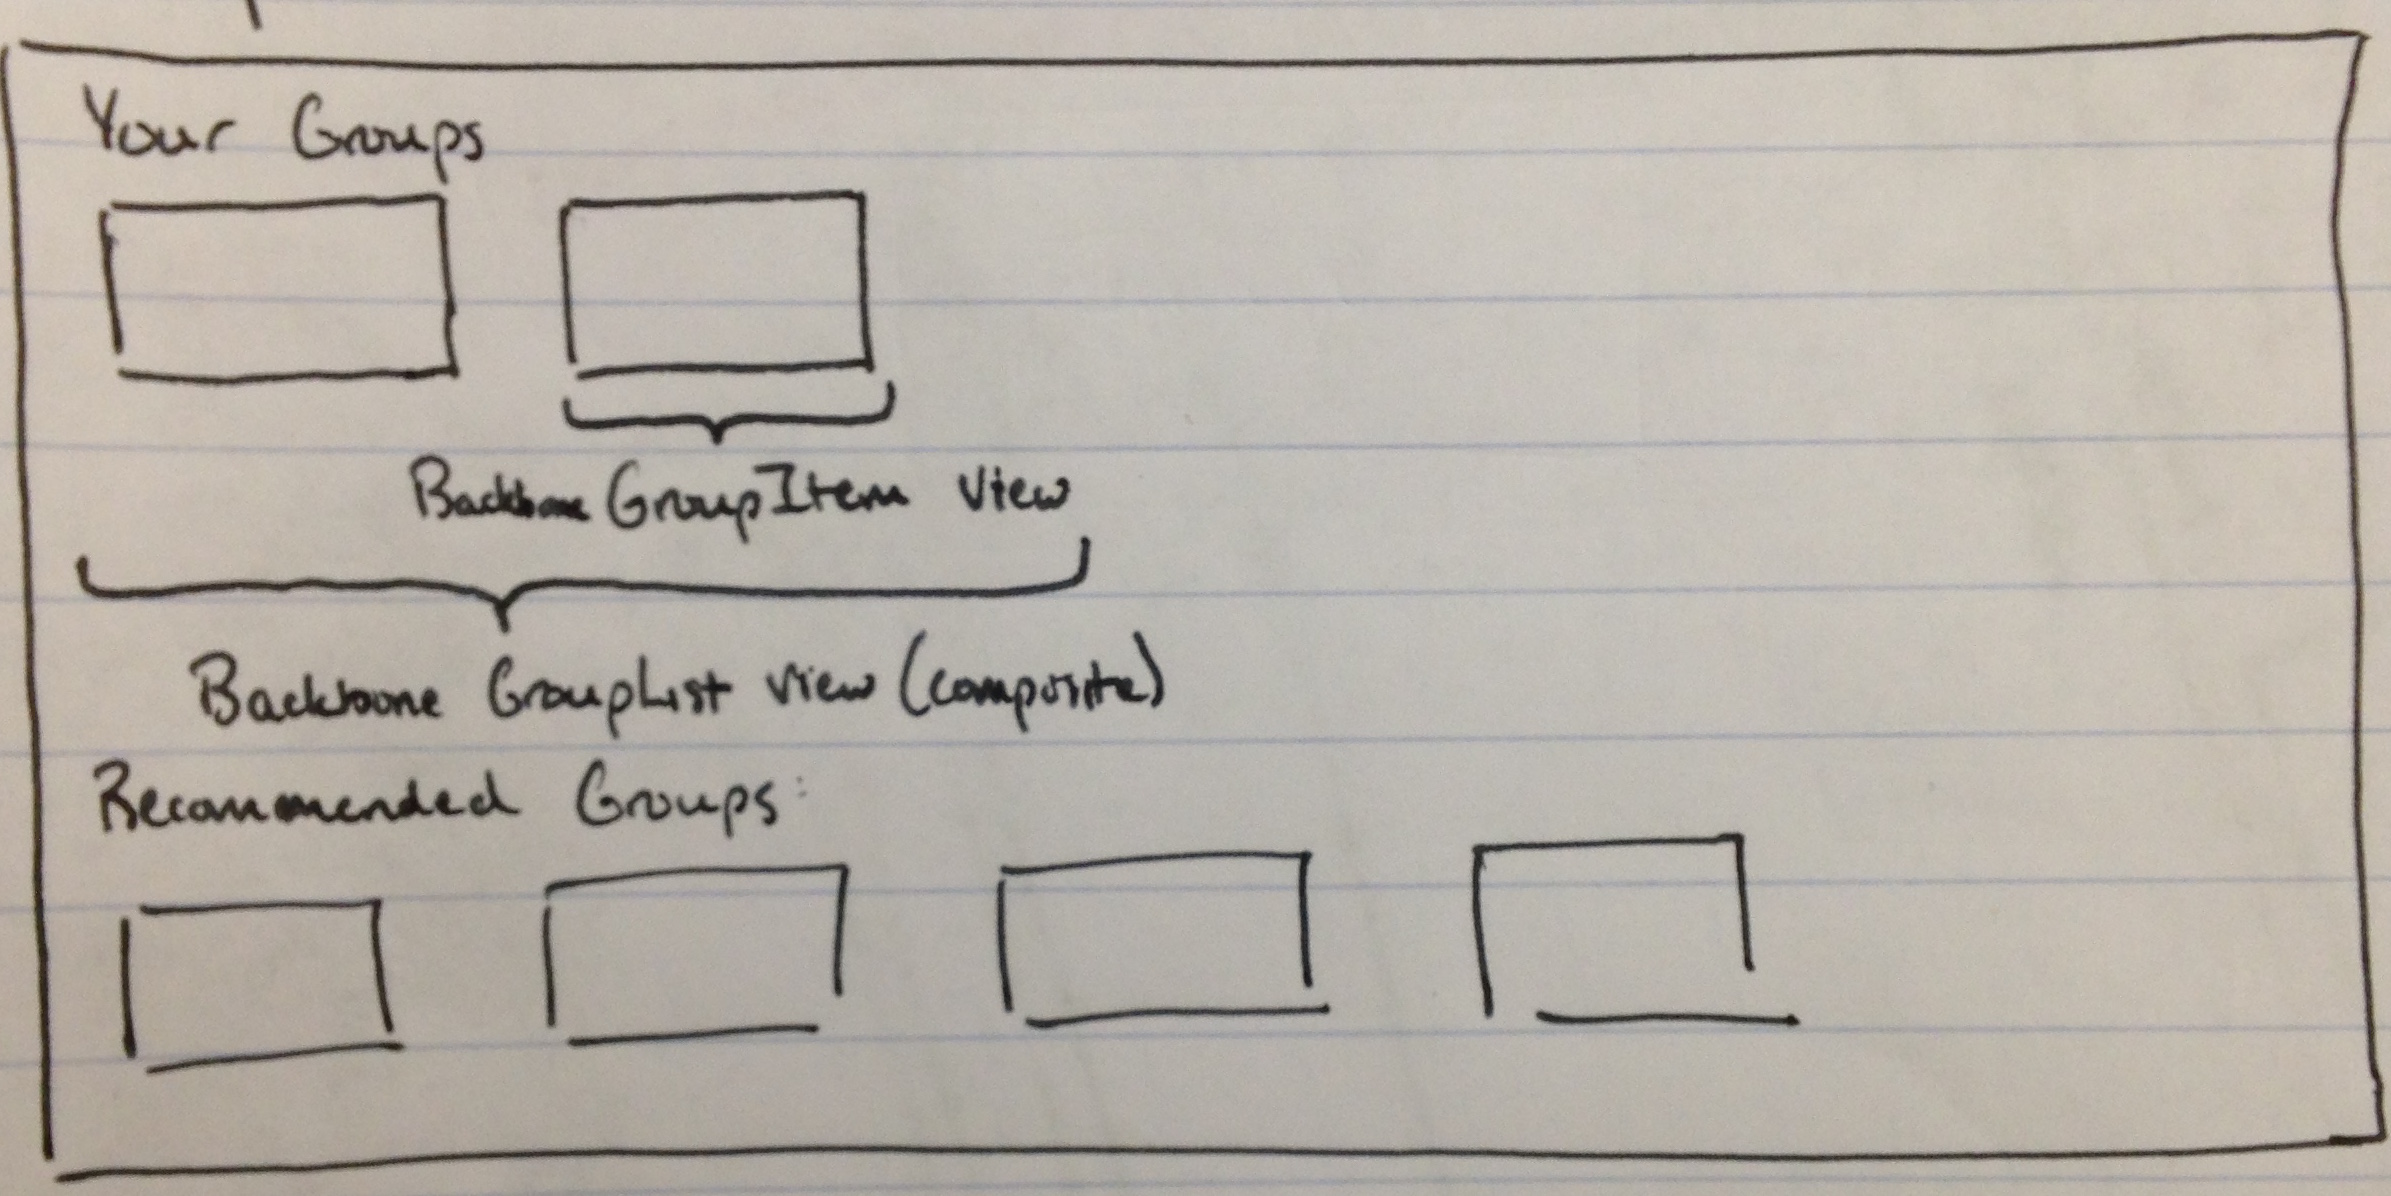 Your Groups
Backbone GroupItem View
Backbone GroupList view (composite)
Recommended Groups: